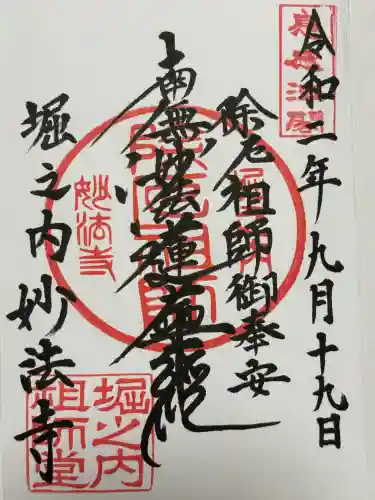 令和二年九月十九日
除厄祖師御奉安
南無妙法蓮華経
堀之内妙法寺
妙法寺
堀之内
祖師堂